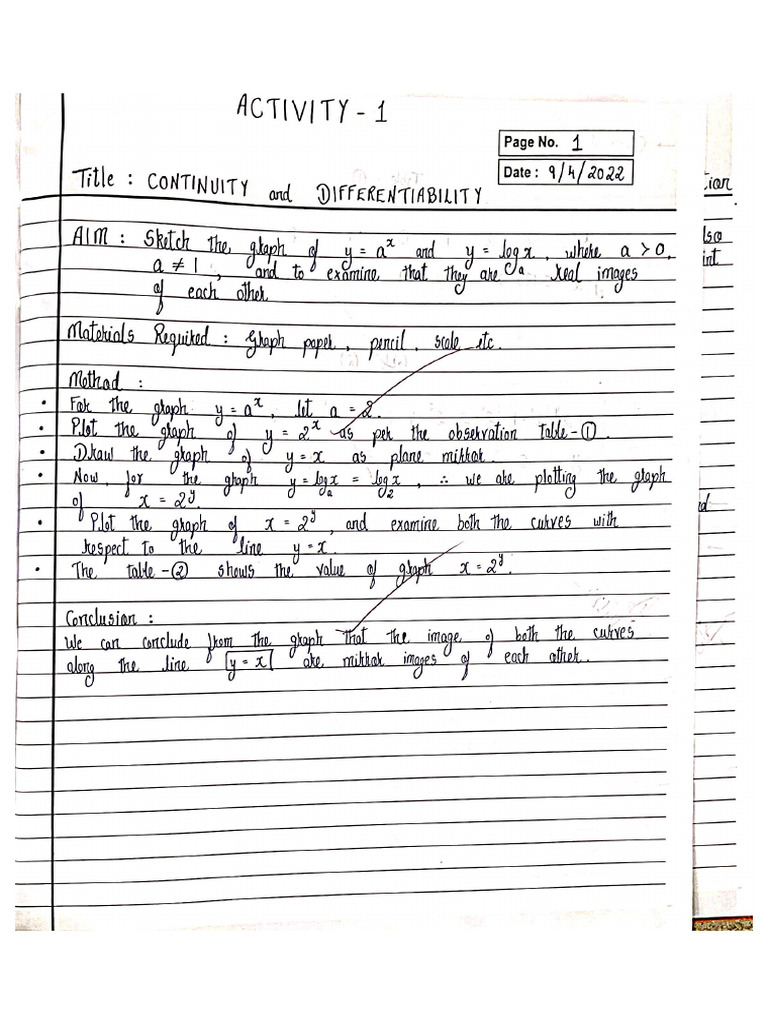 ACTIVITY - 1
Page No. 1
Date : 9/4/2022
Title : CONTINUITY and DIFFERENTIABILITY
AIM : Sketch the graph of y = aˣ and y = logₐx, where a > 0,
a ≠ 1, and to examine that they are real images
of each other
Materials Required : Graph paper, pencil, scale etc.
Method :
• For the graph y = aˣ, let a = 2.
• Plot the graph of y = 2ˣ as per the observation table - ①.
• Draw the graph of y = x as plane mirror.
• Now, for the graph y = logₐx = log₂x, ∴ we are plotting the graph
of x = 2ʸ.
• Plot the graph of x = 2ʸ, and examine both the curves with
respect to the line y = x.
• The table - ② shows the value of graph x = 2ʸ.
Conclusion :
We can conclude from the graph that the image of both the curves
along the line y = x are mirror images of each other.